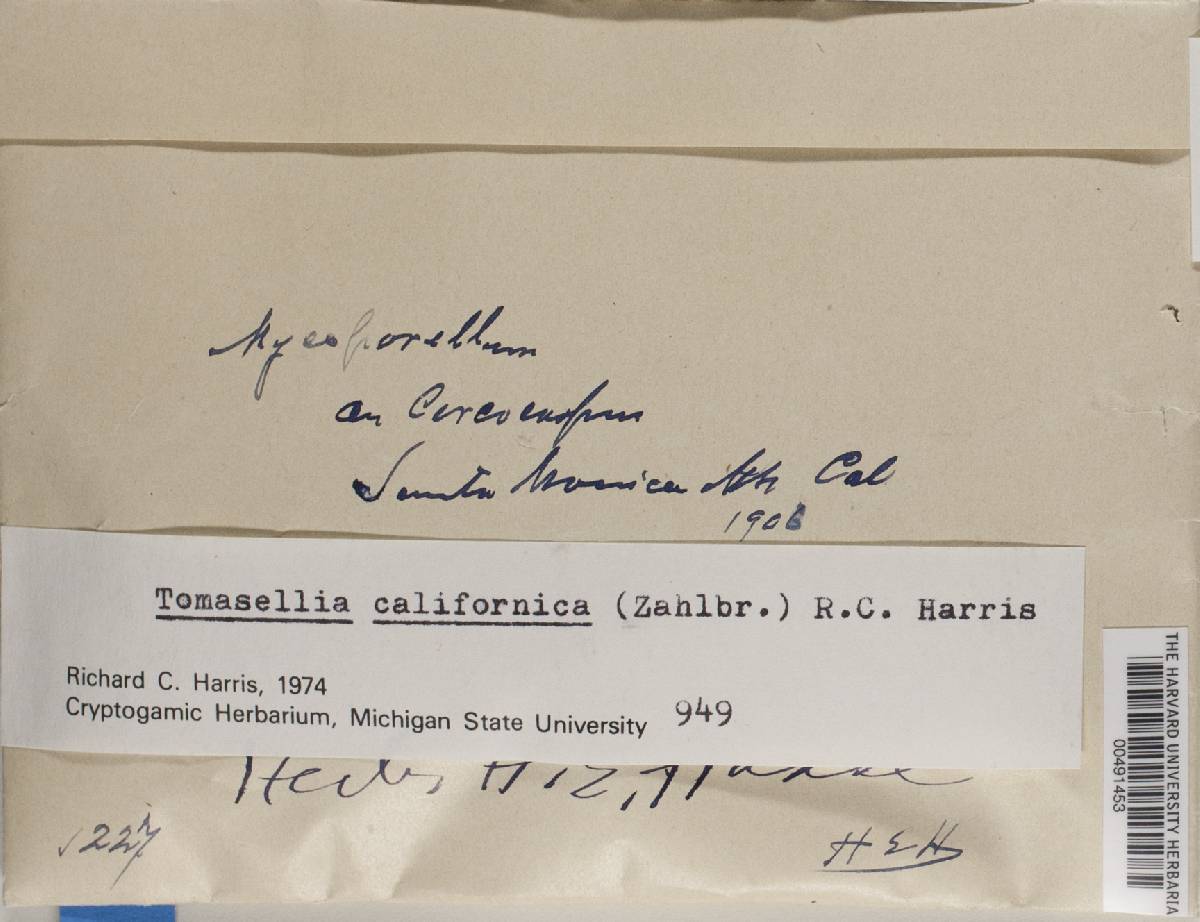 Mycoporellum
on Cercocarpus
Santa Monica Mts Cal
1906
Tomasellia californica (Zahlbr.) R.C. Harris
Richard C. Harris, 1974
Cryptogamic Herbarium, Michigan State University 949
Herb. H. E. Hasse
1227
HEH
THE HARVARD UNIVERSITY HERBARIA
00491453